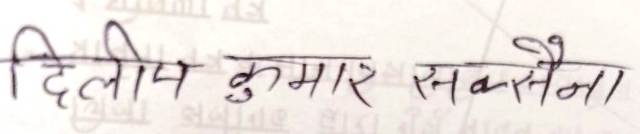 दिलीप कुमार सक्सैना